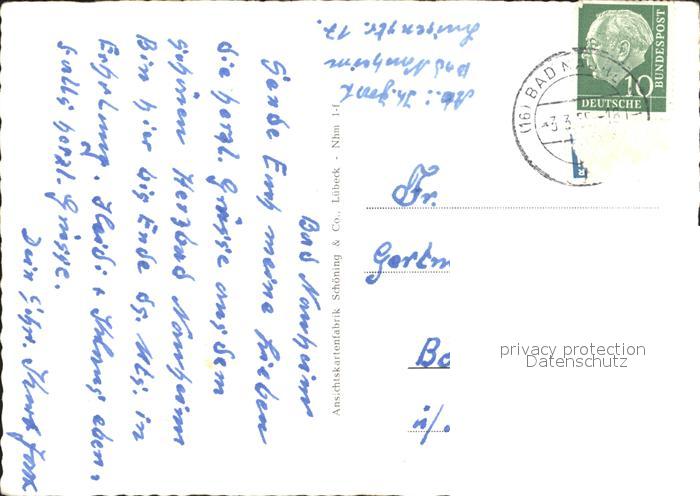 Bad Nauheim
Sende Euch meine lieben
die herzl. Grüsse aus dem
schönen Herzbad Nauheim
Bin hier bis Ende ds. Mts. in
Erholung. Heidi + Helmut eben-
falls herzl. Grüsse.
Dein
Abs.:
Bad Nauheim
17.
Ansichtskartenfabrik Schöning & Co., Lübeck - Nhm 1-f
(16) BAD NA
3.3.55
10
DEUTSCHE
BUNDESPOST
Fr.
Gertru
Ba
ü/.
privacy protection
Datenschutz